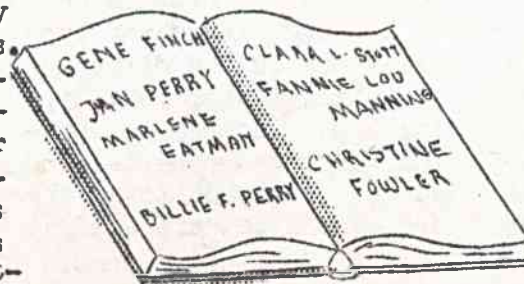 GENE FINCH
JAN PERRY
MARLENE
EATMAN
BILLIE F. PERRY
CLARA L. STOTT
FANNIE LOU
MANNING
CHRISTINE
FOWLER